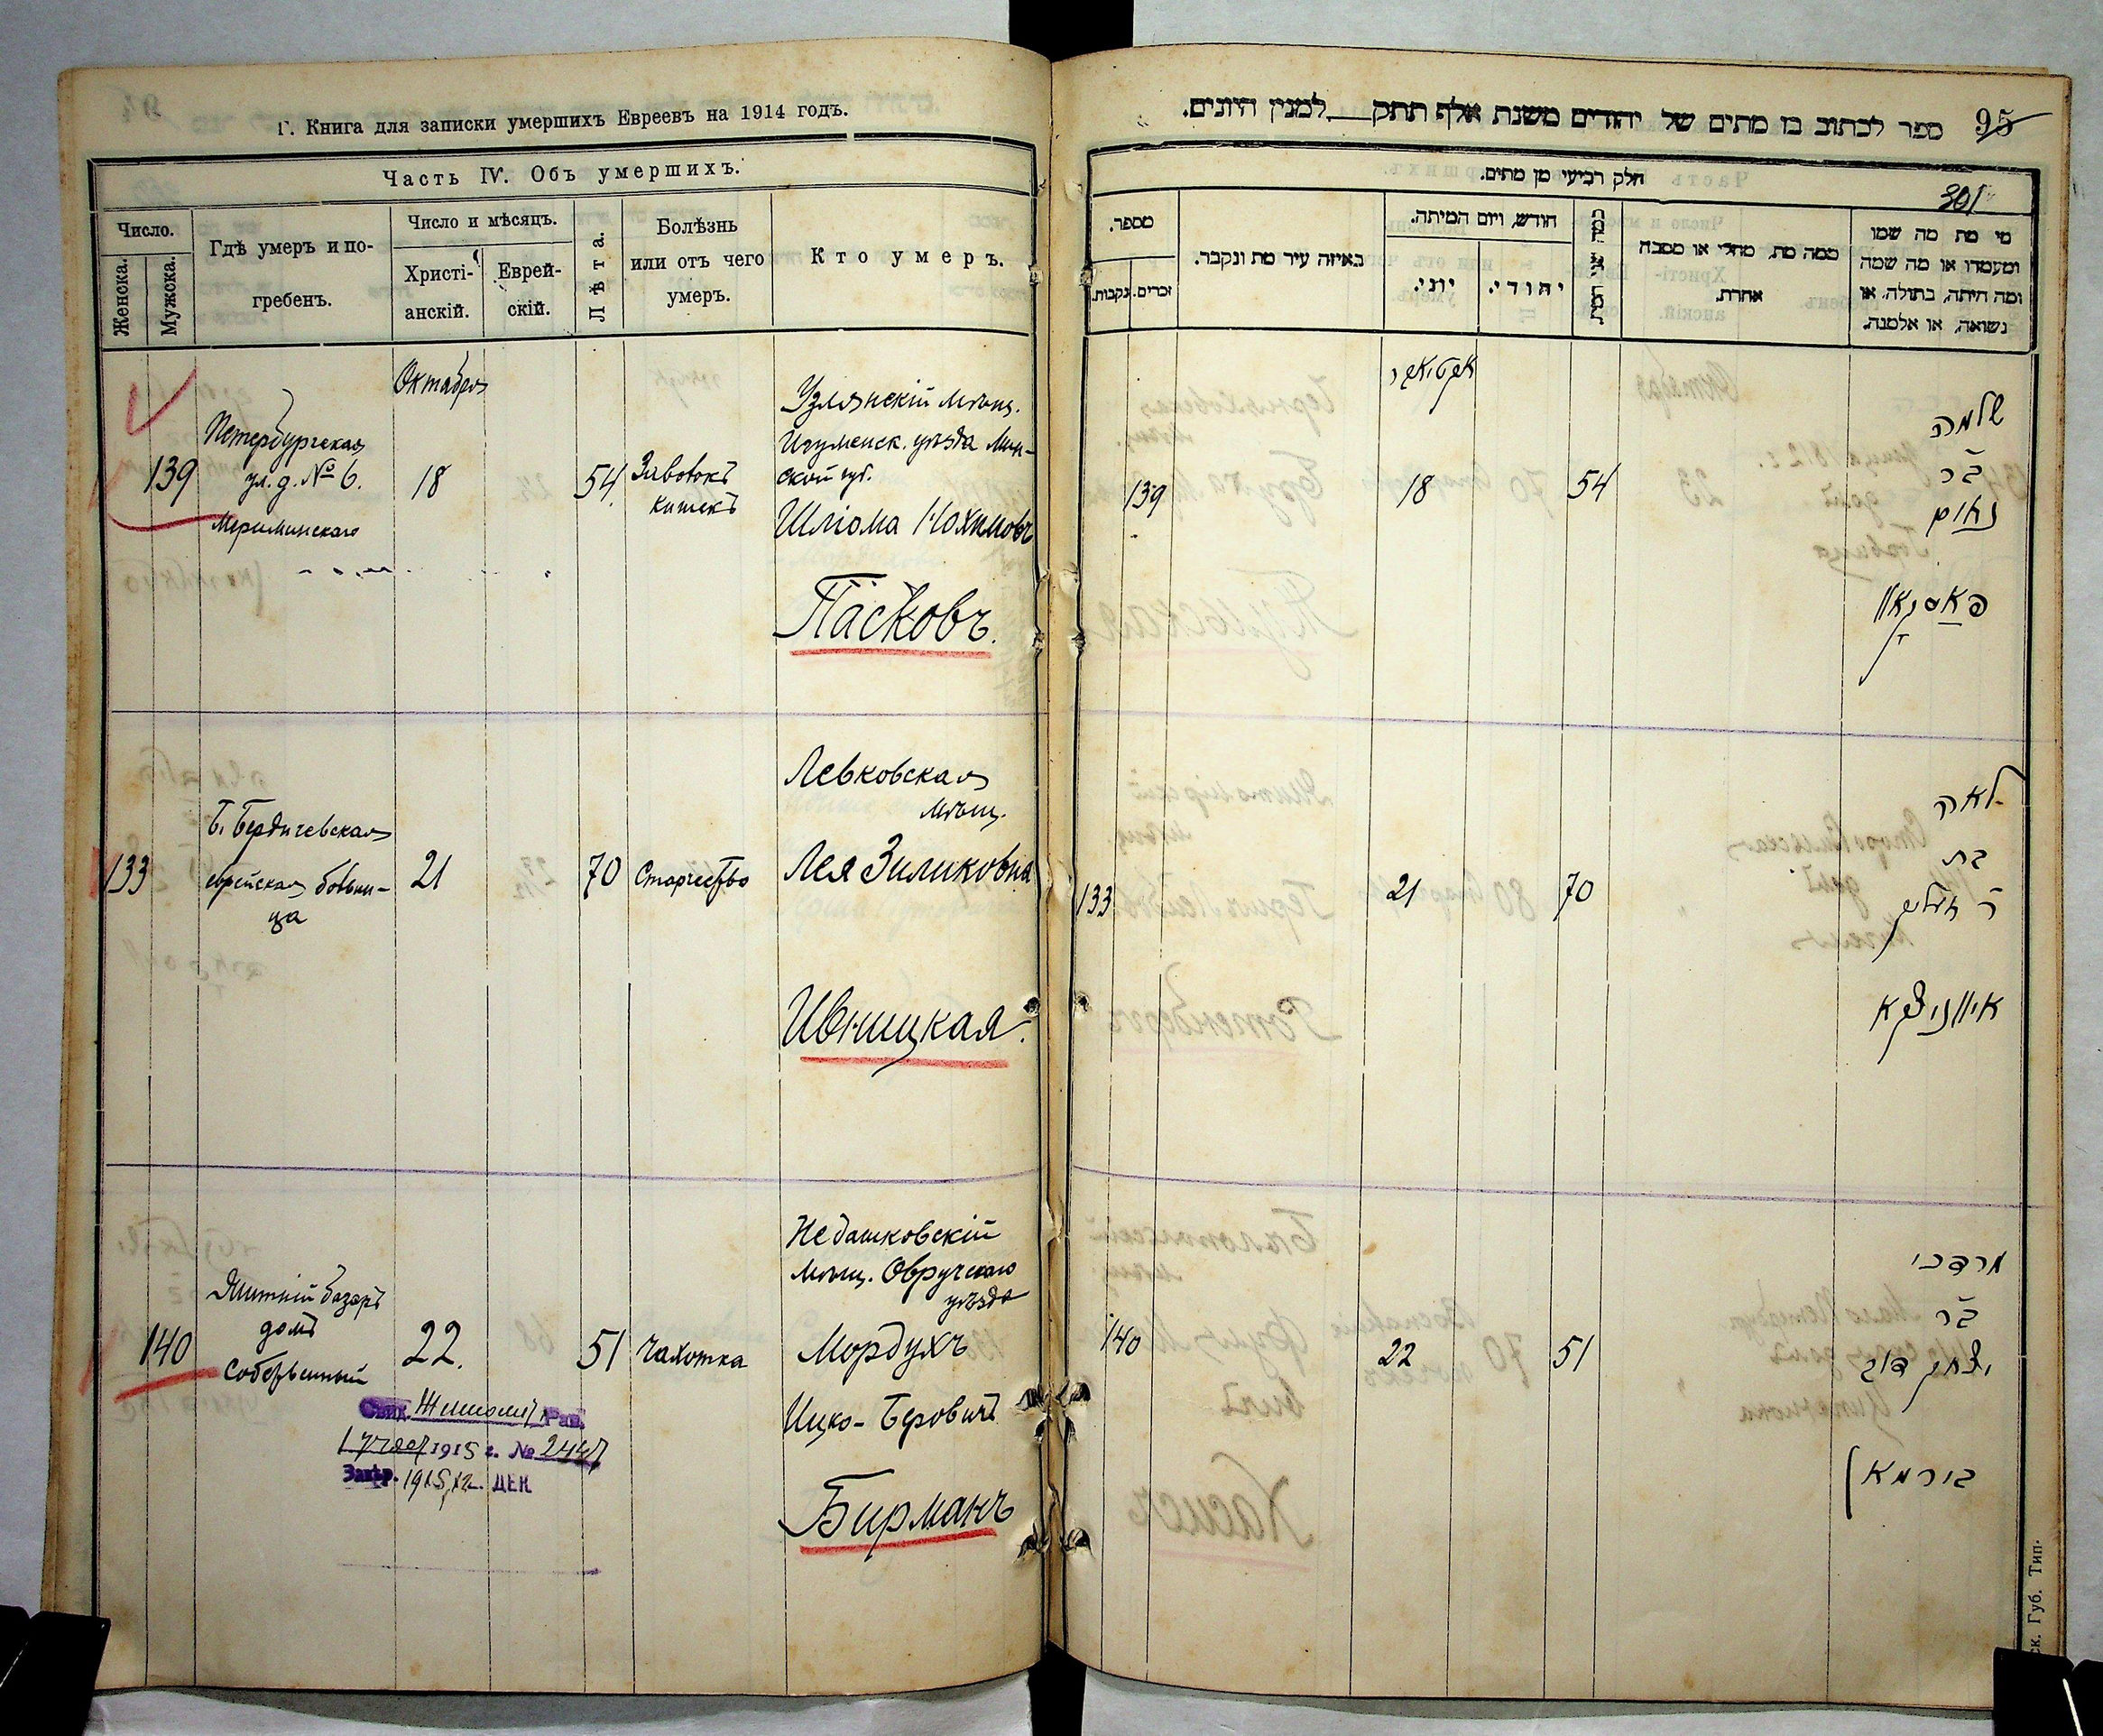 Г. Книга для записки умершихъ Евреевъ на 1914 годъ.
Часть IV. Объ умершихъ.
Число.
Женска.
Мужска.
Гдѣ умеръ и по-
гребенъ.
Число и мѣсяцъ.
Христі-
анскій.
Еврей-
скій.
Лѣта.
Болѣзнь
или отъ чего
умеръ.
Кто умеръ.
Октября
139
Петербургская
ул. д. № 6.
18
54
Заворокъ
кишекъ
Узлянскій мѣщ.
Игуменск. уѣзда Мин-
ской губ.
Шліома Нохимовъ
Пасковъ.
133
Б. Бердичевская
еврейская больни-
ца
21
70
Старчество
Левковская
мѣщ.
Лея Зиликовна
Ивницкая.
140
Житній базаръ
домъ
собственный
22.
51
Чахотка
Недашковскій
мѣщ. Овручскаго
уѣзда
Мордухъ
Ицко-Беровичъ
Бирманъ
1915 г. №
1915 12. ДЕК
95
ספר לכתוב בו מתים של יהודים משנת אלף תתק למנין היונים.
חלק רביעי מן מתים.
301
מספר.
נקבות.
זכרים.
באיזה עיר מת ונקבר.
חודש, ויום המיתה.
יוני.
יהודי.
ממה מת, מחלי או מסבה
אחרת.
מי מת מה שמו
ומעמדו או מה שמה
ומה היתה, בתולה, או
נשואה, או אלמנה.
אקטיאבר
139
18
54
שלמה
ב״ר
נאום
פאסקאוו
133
21
70
לאה
בת
ר׳ זעליג
איווניצקא
140
22
51
מרדכי
ב״ר
יצחק דוב
בירמאן
ск. Губ. Тип.